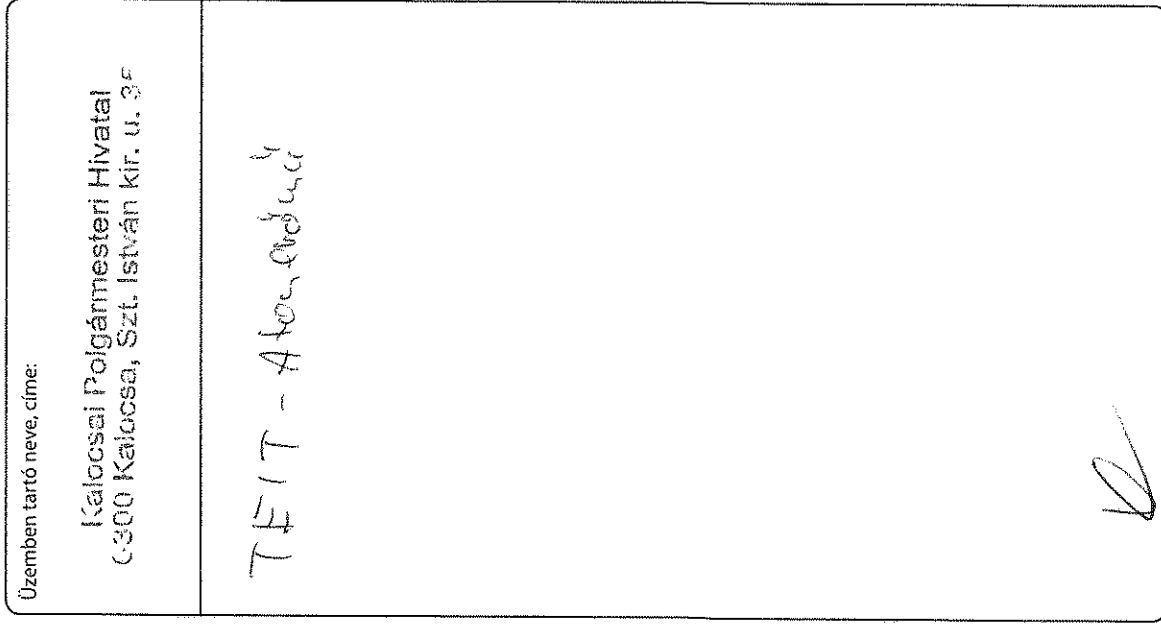 Üzemben tartó neve, címe:
Kalocsai Polgármesteri Hivatal
6300 Kalocsa, Szt. István kir. u. 35
TEIT - Atomerőmű